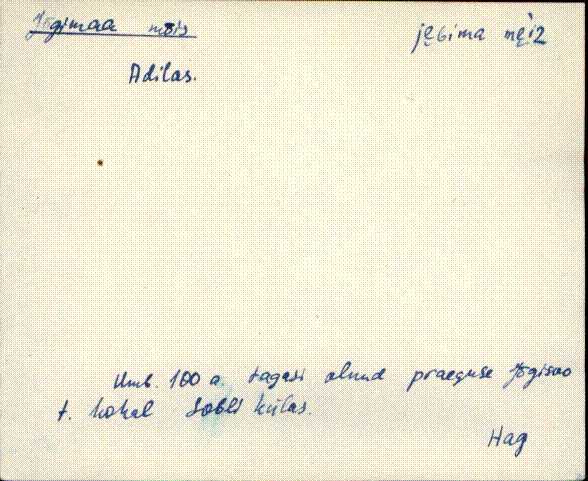 Jõgimaa mõis
jẹGima mẹiz
Adilas.
Umb. 100 a. tagasi olnud praeguse Jõgisoo
t. kohal Sobli külas.
Hag